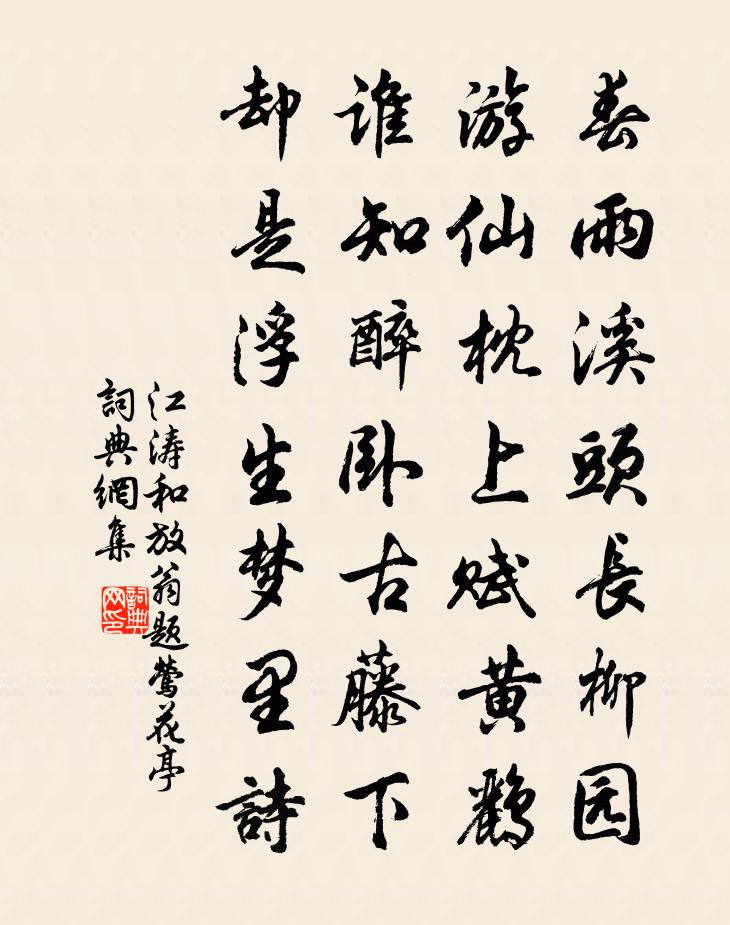 春雨溪頭長柳园
游仙枕上赋黄鸝
谁知醉卧古藤下
却是浮生梦里詩
江涛和放翁题鶯花亭
詞典網集
詞典网印